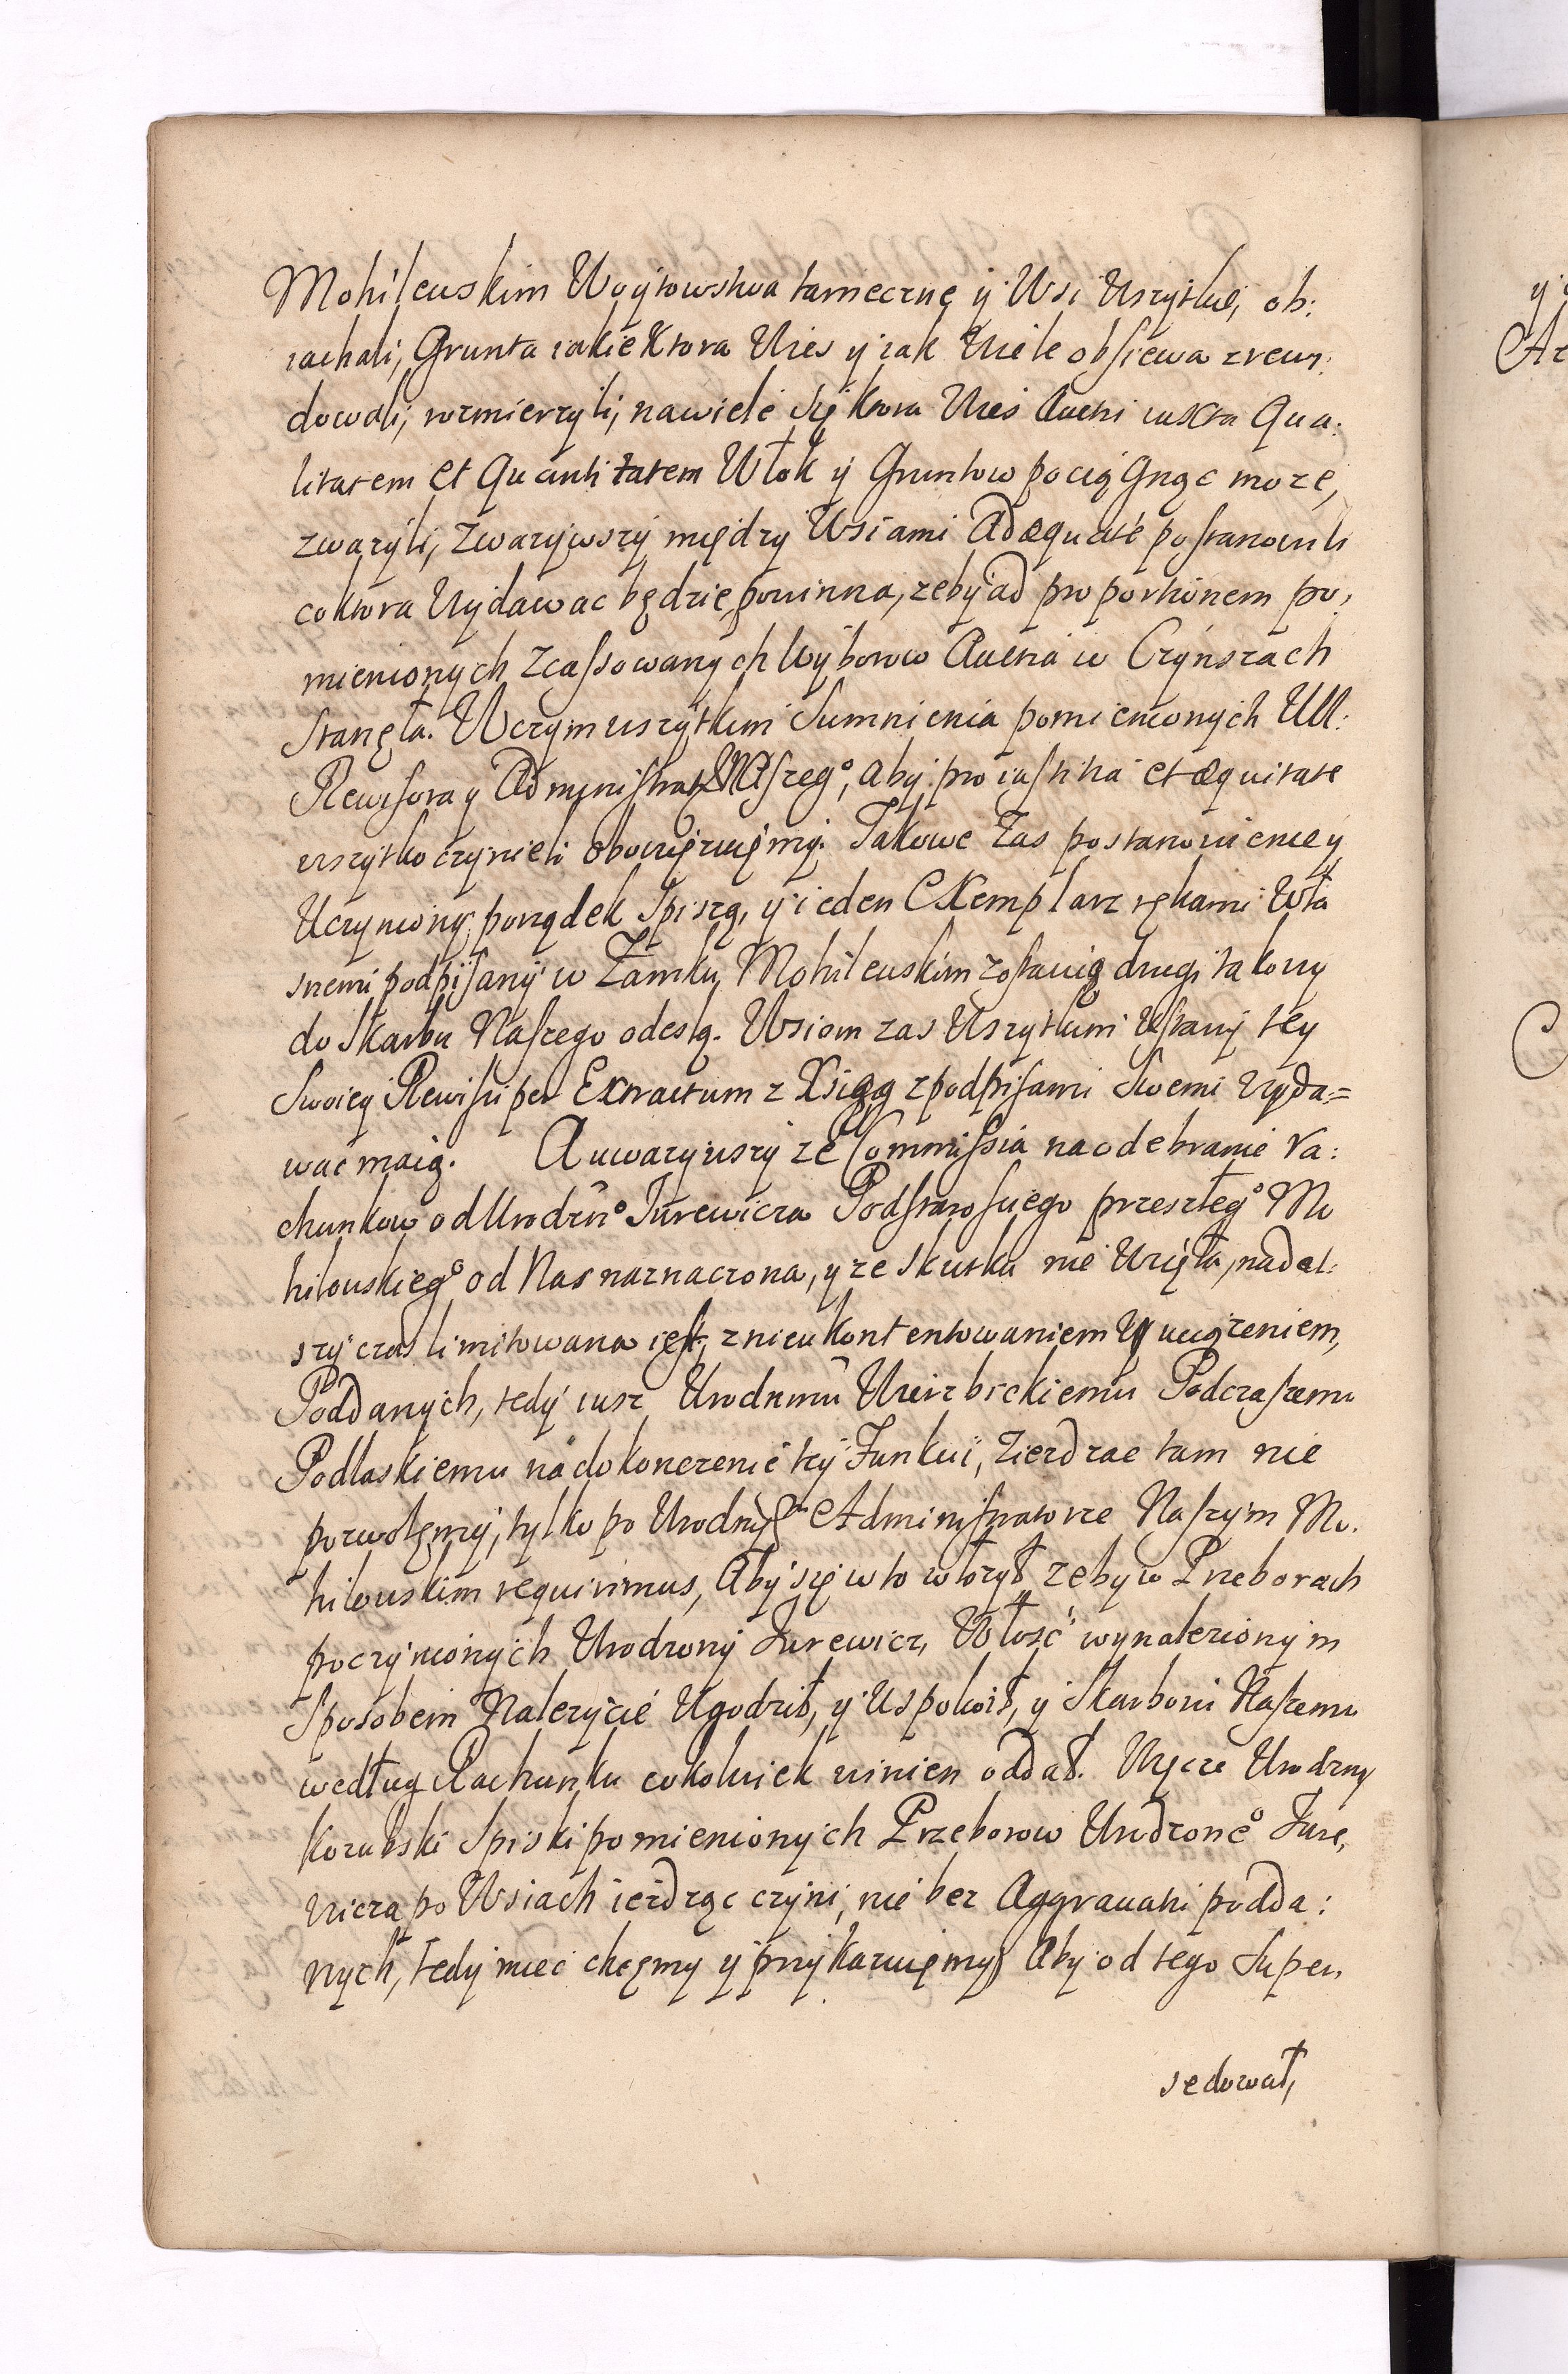 Mohileuskim Woytowstwa tameczne y Wsi Wszytkie, ob:
iachali, Grunta iakie Ktora Wies y iak Wiele obsiewa zrewi:
dowali, rozmierzyli, nawiele się ktora Wies Aucti iuxta Qua:
litatem et Quantitatem Włok y Gruntow pociągnąc moze,
zwazyli, zwazywszy między Wsiami Adæquate postanowili
co ktora Wydawac będzie powinna, zeby ad proportionem po,
mienionych zcassowanych Wyborow Auctia w Czynszach
stanęła. W czym wszytkim Sumnienia pomienionych UU:
Rewisora y Administrat Naszeg°, aby pro iustitia et æquitate
wszytko czynieli obowięzuiemy. Takowe Zas postanowienie y
Uczyniony porządek Spiszą, y ieden Exemplarz rękami Wła
snemi podpisany w Zamku Mohileuskim zostawią drugi takowy
do Skarbu Naszego odeslą. Wsiom zas Wszytkim Ustawy tey
Swoiey Rewisii per Extractum z Xsiąg z podpisami Swemi Wyda=
wac maią. A uwazywszy ze Commissia na odebranie Ra:
chunkow od Urodzn° Jurewicza Podstarosciego przeszłeg° Mo
hilouskieg° od Nas naznaczona, y ze skutku nie Wzięła, na dal:
szy czas limitowana iest, z nieukontentowaniem y uciązeniem,
Poddanych, tedy iusz Urodnmu Wierzbickiemu Podczaszemu
Podlaskiemu na dokonczenie tey Funkcii, Ziezdzac tam nie
pozwolęmy, tylko po Urodnym Administratorze Naszym Mo.
hilouskim requirimus, Aby się w to włozył zeby w Przeborach
poczynionych Urodzony Jurewicz, Włość wynalezionym
Sposobem Nalezycie Ugodził, y Uspokoił, y Skarbowi Naszemu
według Rachunku cokolwiek winien oddał. Więcze Urodzny
Kozubski Spiski pomienionych Przeborow Urodzone° Jure,
wicza po Wsiach iezdząc czyni, nie bez Aggrauatii podda:
nych, tedy miec chcęmy y przykazuięmy Aby od tego Super,
sedował,